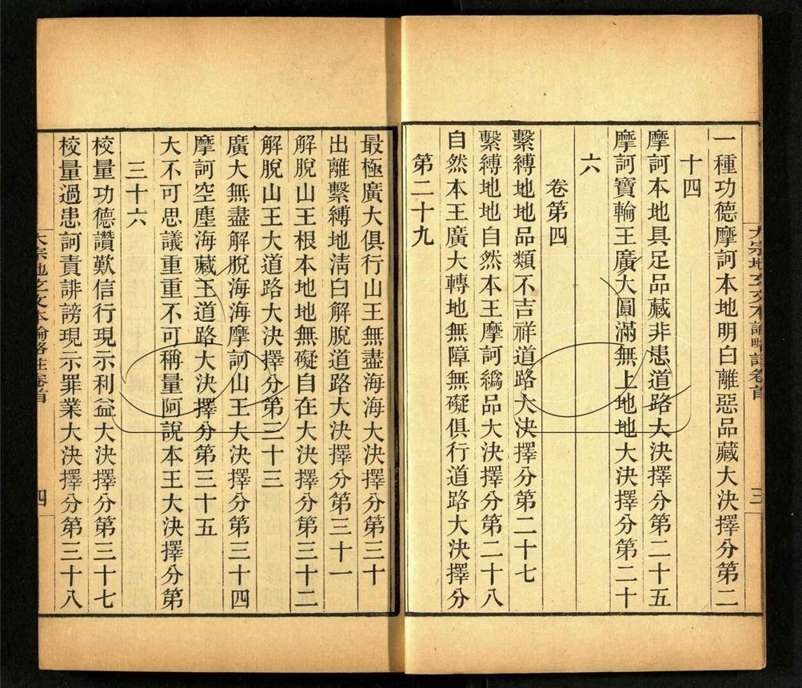 一種功德摩訶本地明白離惡品藏大決擇分第二
十四
摩訶本地具足品藏非患道路大決擇分第二十五
摩訶寶輪王廣大圓滿無上地地大決擇分第二十
六
卷第四
繫縛地地品類不吉祥道路大決擇分第二十七
繫縛地地自然本王摩訶縛品大決擇分第二十八
自然本王廣大轉地無障無礙俱行道路大決擇分
第二十九
大宗地玄文本論略註卷首
三
最極廣大俱行山王無盡海海大決擇分第三十
出離繫縛地清白解脫道路大決擇分第三十一
解脫山王根本地地無礙自在大決擇分第三十二
解脫山王大道路大決擇分第三十三
廣大無盡解脫海海摩訶山王大決擇分第三十四
摩訶空塵海藏王道路大決擇分第三十五
大不可思議重重不可稱量阿說本王大決擇分第
三十六
校量功德讚歎信行現示利益大決擇分第三十七
校量過患訶責誹謗現示罪業大決擇分第三十八
大宗地玄文本論略註卷首
四